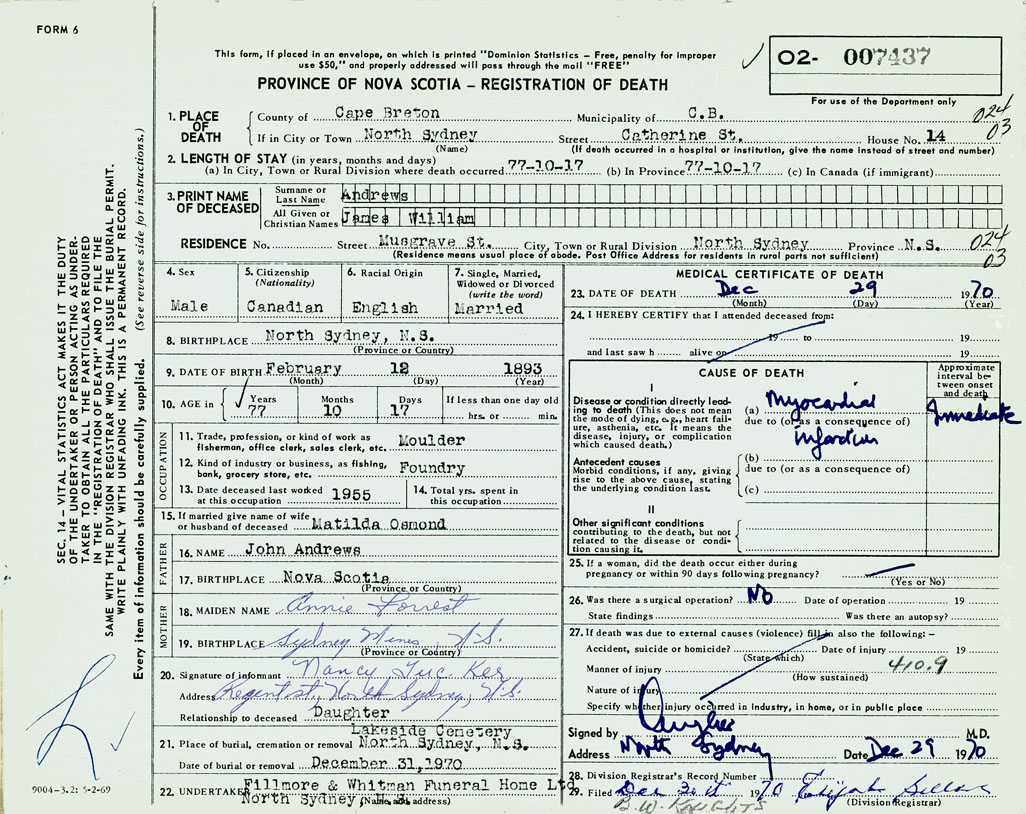 FORM 6
This form, if placed in an envelope, on which is printed "Dominion Statistics – Free, penalty for improper
use $50," and properly addressed will pass through the mail "FREE"
PROVINCE OF NOVA SCOTIA – REGISTRATION OF DEATH
02- 007437
For use of the Department only
024
03
SEC. 14 – VITAL STATISTICS ACT MAKES IT THE DUTY
OF THE UNDERTAKER OR PERSON ACTING AS UNDER-
TAKER TO OBTAIN ALL THE PARTICULARS REQUIRED
IN THE "REGISTRATION OF DEATH" AND TO FILE THE
SAME WITH THE DIVISION REGISTRAR WHO SHALL ISSUE THE BURIAL PERMIT.
WRITE PLAINLY WITH UNFADING INK. THIS IS A PERMANENT RECORD.
Every item of information should be carefully supplied. (See reverse side for instructions.)
1. PLACE OF DEATH
County of Cape Breton Municipality of C.B.
If in City or Town North Sydney Street Catherine St. House No. 14
(Name) (If death occurred in a hospital or institution, give the name instead of street and number)
2. LENGTH OF STAY (in years, months and days)
(a) In City, Town or Rural Division where death occurred 77-10-17 (b) In Province 77-10-17 (c) In Canada (if immigrant)
3. PRINT NAME OF DECEASED
Surname or Last Name Andrews
All Given or Christian Names James William
RESIDENCE No. Street Musgrave St. City, Town or Rural Division North Sydney Province N.S.
(Residence means usual place of abode. Post Office Address for residents in rural parts not sufficient)
024
03
4. Sex
Male
5. Citizenship
(Nationality)
Canadian
6. Racial Origin
English
7. Single, Married,
Widowed or Divorced
(write the word)
Married
8. BIRTHPLACE North Sydney, N.S.
(Province or Country)
9. DATE OF BIRTH February 12 1893
(Month) (Day) (Year)
10. AGE in Years 77 Months 10 Days 17 If less than one day old
hrs. or min.
OCCUPATION
11. Trade, profession, or kind of work as
fisherman, office clerk, sales clerk, etc. Moulder
12. Kind of industry or business, as fishing,
bank, grocery store, etc. Foundry
13. Date deceased last worked
at this occupation 1955
14. Total yrs. spent in
this occupation
15. If married give name of wife
or husband of deceased Matilda Osmond
FATHER
16. NAME John Andrews
17. BIRTHPLACE Nova Scotia
(Province or Country)
MOTHER
18. MAIDEN NAME Annie Forrest
19. BIRTHPLACE Sydney Mines, N.S.
(Province or Country)
20. Signature of informant Nancy
Address Regent st, North Sydney, N.S.
Relationship to deceased Daughter
Lakeside Cemetery
21. Place of burial, cremation or removal North Sydney, N.S.
Date of burial or removal December 31, 1970
22. UNDERTAKER Fillmore & Whitman Funeral Home Ltd
North Sydney, N.S.
(Name and address)
9004-3.2: 5-2-69
MEDICAL CERTIFICATE OF DEATH
23. DATE OF DEATH Dec 29 1970
(Month) (Day) (Year)
24. I HEREBY CERTIFY that I attended deceased from:
19 to 19
and last saw h alive on 19
CAUSE OF DEATH
Approximate
interval be-
tween onset
and death
I
Disease or condition directly lead-
ing to death (This does not mean
the mode of dying, e.g., heart fail-
ure, asthenia, etc. It means the
disease, injury, or complication
which caused death.)
(a) Myocardial
due to (or as a consequence of)
infarction
Immediate
Antecedent causes
Morbid conditions, if any, giving
rise to the above cause, stating
the underlying condition last.
(b)
due to (or as a consequence of)
(c)
II
Other significant conditions
contributing to the death, but not
related to the disease or condi-
tion causing it.
25. If a woman, did the death occur either during
pregnancy or within 90 days following pregnancy?
(Yes or No)
26. Was there a surgical operation? No Date of operation 19
State findings Was there an autopsy?
27. If death was due to external causes (violence) fill in also the following: –
Accident, suicide or homicide? Date of injury 19
(State which)
Manner of injury 410.9
(How sustained)
Nature of injury
Specify whether injury occurred in Industry, in home, or in public place
Signed by M.D.
Address North Sydney Date Dec 29 1970
28. Division Registrar's Record Number
29. Filed Dec 1970 Elijah
(Division Registrar)